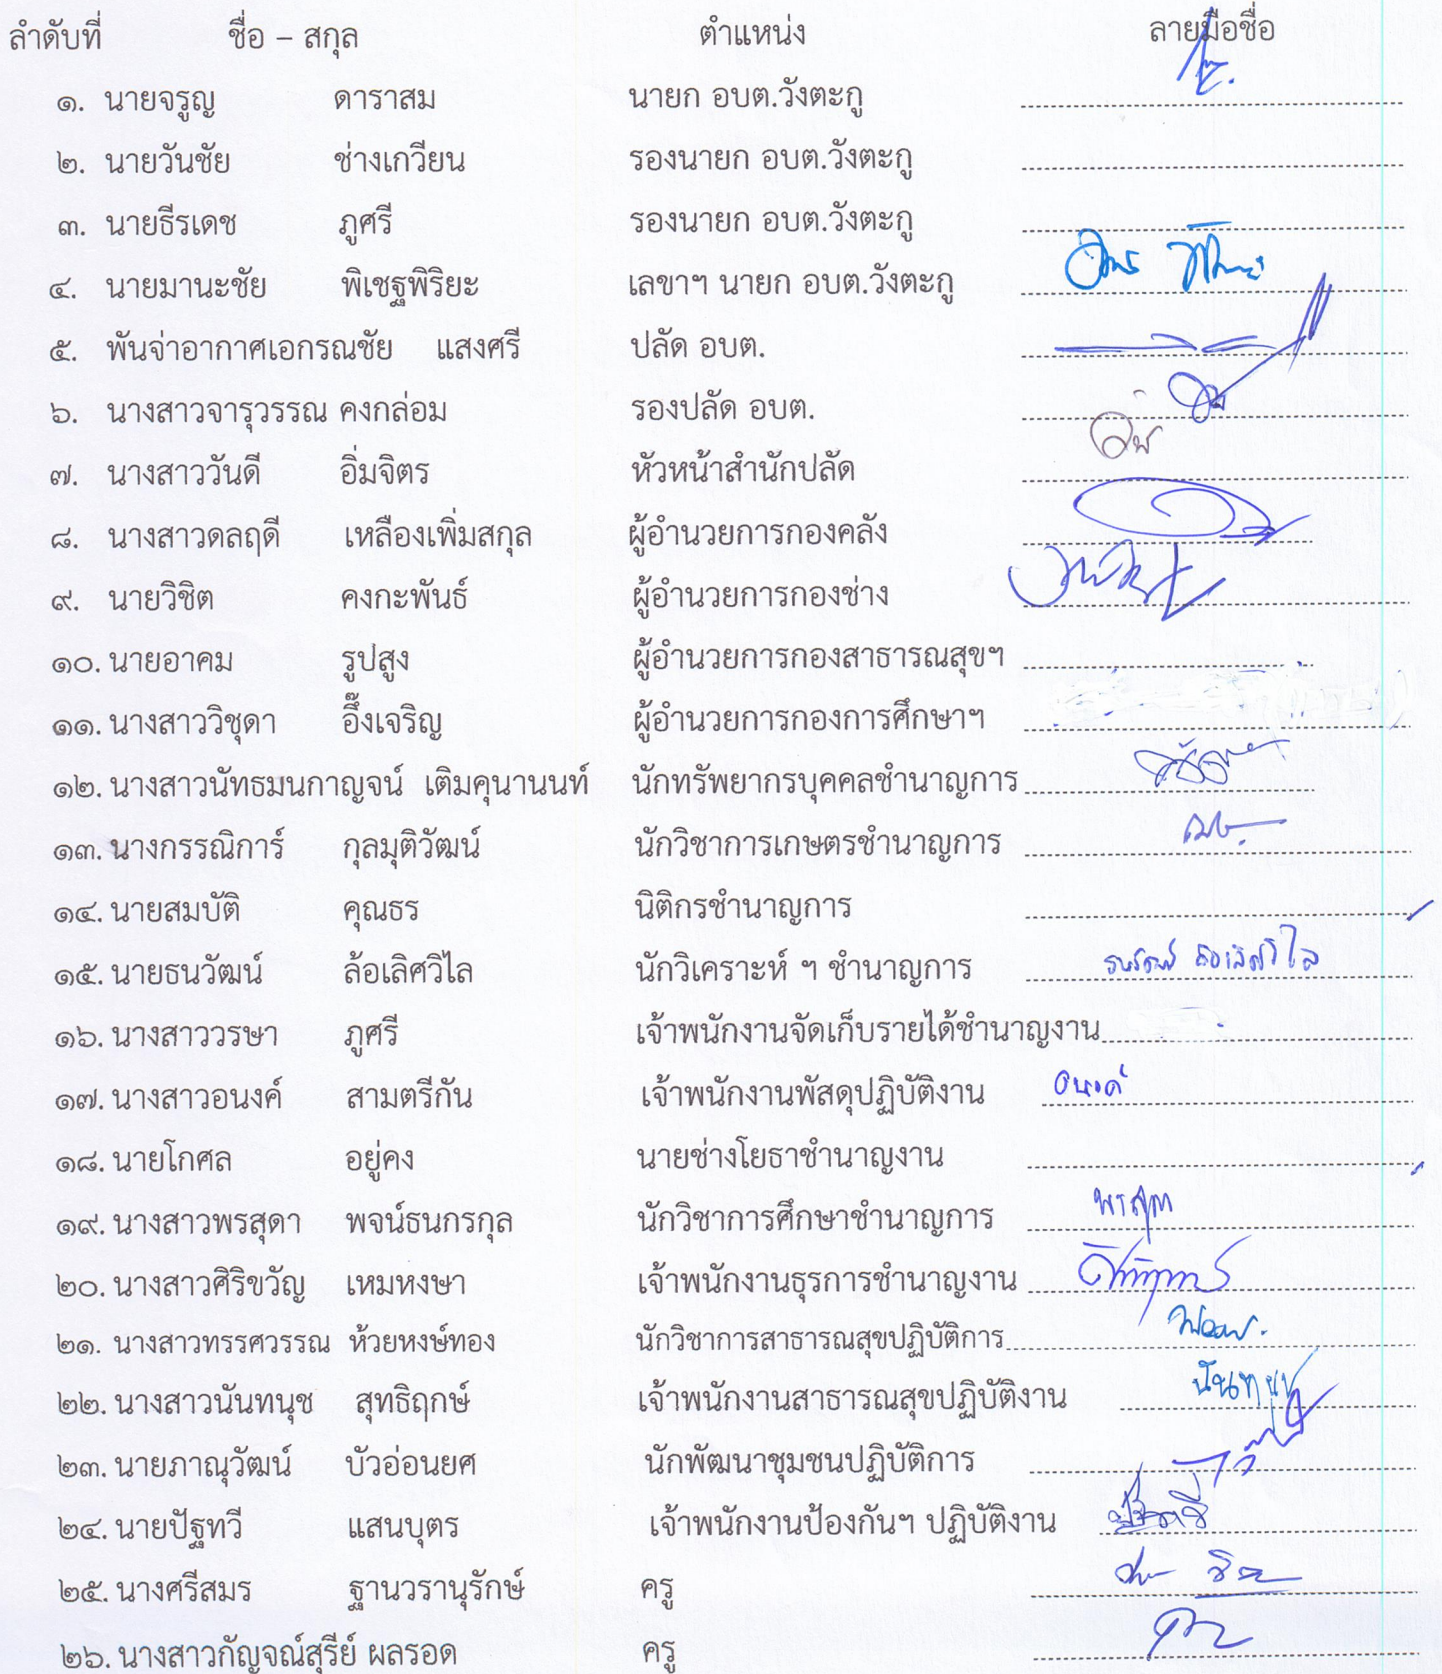 ลำดับที่ ชื่อ – สกุล ตำแหน่ง ลายมือชื่อ
๑. นายจรูญ ดาราสม นายก อบต.วังตะกู
๒. นายวันชัย ช่างเกวียน รองนายก อบต.วังตะกู
๓. นายธีรเดช ภูศรี รองนายก อบต.วังตะกู
๔. นายมานะชัย พิเชฐพิริยะ เลขาฯ นายก อบต.วังตะกู
๕. พันจ่าอากาศเอกรณชัย แสงศรี ปลัด อบต.
๖. นางสาวจารุวรรณ คงกล่อม รองปลัด อบต.
๗. นางสาววันดี อิ่มจิตร หัวหน้าสำนักปลัด
๘. นางสาวดลฤดี เหลืองเพิ่มสกุล ผู้อำนวยการกองคลัง
๙. นายวิชิต คงกะพันธ์ ผู้อำนวยการกองช่าง
๑๐. นายอาคม รูปสูง ผู้อำนวยการกองสาธารณสุขฯ
๑๑. นางสาววิชุดา อึ๊งเจริญ ผู้อำนวยการกองการศึกษาฯ
๑๒. นางสาวนัทธมนกาญจน์ เติมคุนานนท์ นักทรัพยากรบุคคลชำนาญการ
๑๓. นางกรรณิการ์ กุลมุติวัฒน์ นักวิชาการเกษตรชำนาญการ
๑๔. นายสมบัติ คุณธร นิติกรชำนาญการ
๑๕. นายธนวัฒน์ ล้อเลิศวิไล นักวิเคราะห์ ฯ ชำนาญการ ธนวัฒน์ ล้อเลิศวิไล
๑๖. นางสาววรษา ภูศรี เจ้าพนักงานจัดเก็บรายได้ชำนาญงาน
๑๗. นางสาวอนงค์ สามตรีกัน เจ้าพนักงานพัสดุปฏิบัติงาน อนงค์
๑๘. นายโกศล อยู่คง นายช่างโยธาชำนาญงาน
๑๙. นางสาวพรสุดา พจน์ธนกรกุล นักวิชาการศึกษาชำนาญการ พรสุดา
๒๐. นางสาวศิริขวัญ เหมหงษา เจ้าพนักงานธุรการชำนาญงาน
๒๑. นางสาวทรรศวรรณ ห้วยหงษ์ทอง นักวิชาการสาธารณสุขปฏิบัติการ
๒๒. นางสาวนันทนุช สุทธิฤกษ์ เจ้าพนักงานสาธารณสุขปฏิบัติงาน นันทนุช
๒๓. นายภาณุวัฒน์ บัวอ่อนยศ นักพัฒนาชุมชนปฏิบัติการ
๒๔. นายปัฐทวี แสนบุตร เจ้าพนักงานป้องกันฯ ปฏิบัติงาน
๒๕. นางศรีสมร ฐานวรานุรักษ์ ครู
๒๖. นางสาวกัญจณ์สุรีย์ ผลรอด ครู